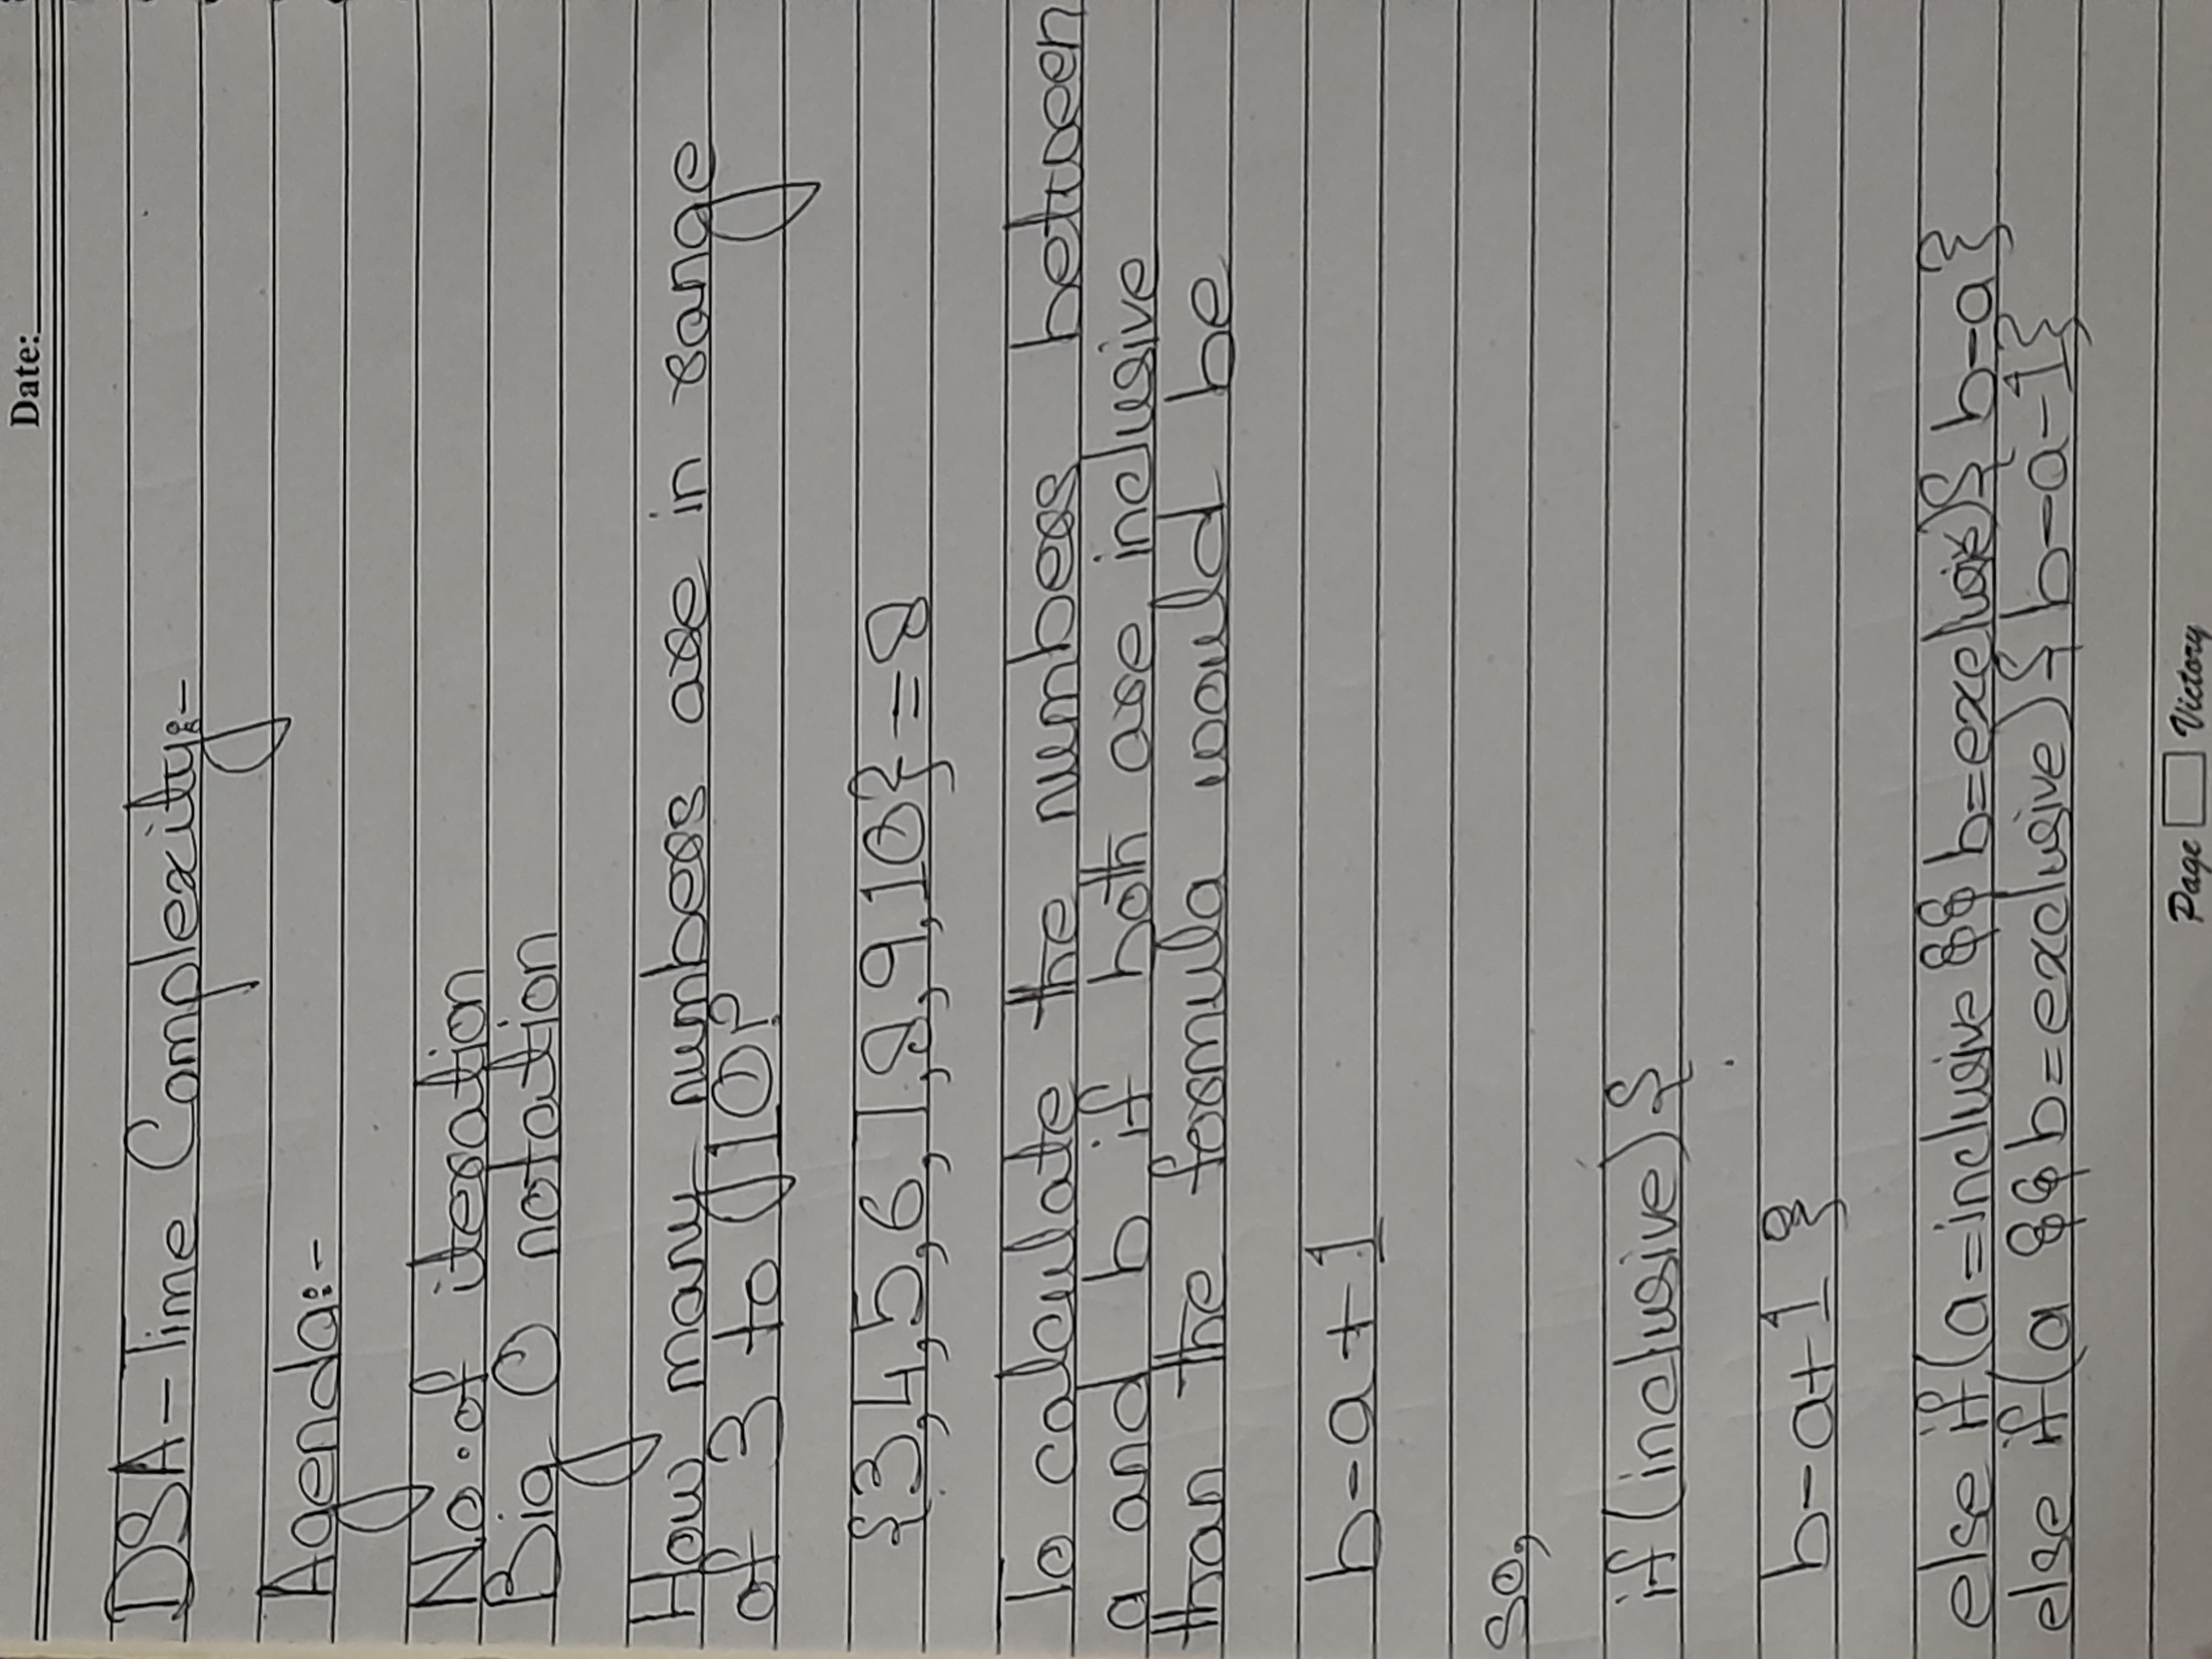 Date:
DSA-Time Complexity:-
Agenda:-
No. of iteration
Big O notation
How many numbers are in range
of 3 to 10?
{3,4,5,6,7,8,9,10} = 8
To calculate the numbers between
a and b if both are inclusive
than the formula would be
b-a+1
so,
if(inclusive){
b-a+1 }
else if(a=inclusive && b=exclusive){ b-a}
else if(a && b=exclusive){ b-a-1}
Page Victory